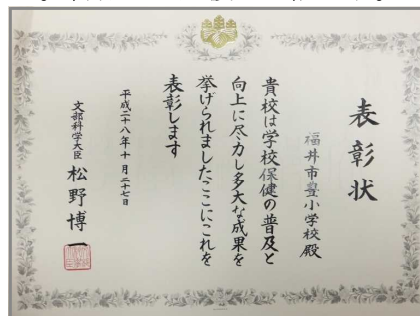 表彰状
福井市豊小学校殿
貴校は学校保健の普及と
向上に尽力し多大な成果を
挙げられましたここにこれを
表彰します
平成二十八年十月二十七日
文部科学大臣 松野博一